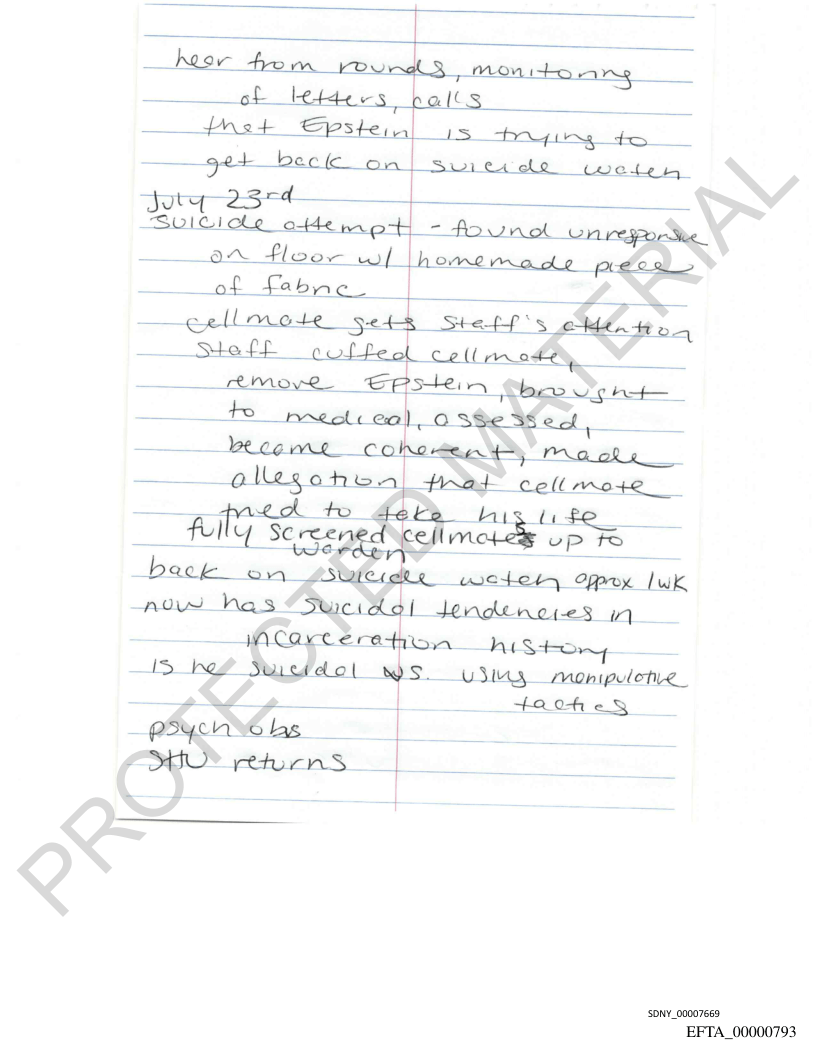 hear from rounds, monitoring
of letters, calls
that Epstein is trying to
get back on suicide watch
July 23rd
suicide attempt - found unresponsive
on floor w/ homemade piece
of fabric
cellmate gets staff's attention
staff cuffed cellmate,
remove Epstein, brought
to medical, assessed,
become coherent, made
allegation that cellmate
tried to take his life
fully screened cellmates up to
warden
back on suicide watch approx 1wk
now has suicidal tendencies in
incarceration history
is he suicidal vs. using manipulative
tactics
psych obs
SHU returns
PROTECTED MATERIAL
SDNY_00007669
EFTA_00000793